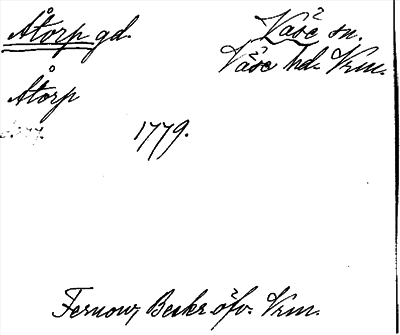 Åtorp gd. Väse sn.
Väse hd. Vrm.
Åtorp
1779.
Fernow, Beskr. öfv. Vrm.